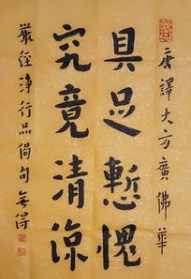 唐譯大方廣佛華
具足慚愧
究竟清涼
嚴經淨行品偈句